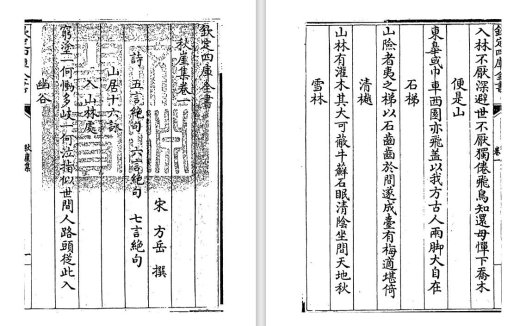 欽定四庫全書
秋崖集卷一
宋 方岳 撰
詩 五言絶句 六言絶句 七言絶句
山居十六詠
入山林處
窮塗一何慟多岐一何泣指似世間人路頭從此入
幽谷
秋崖集
欽定四庫全書
卷一
入林不厭深避世不厭獨倦飛鳥知還毋憚下喬木
便是山
東臯或巾車西園亦飛蓋以我方古人兩脚大自在
石梯
山險者夷之梯以石齒齒於間遂成臺有梅適堪倚
清樾
山林有灌木其大可蔽牛蘚石眠清陰坐間天地秋
雪林